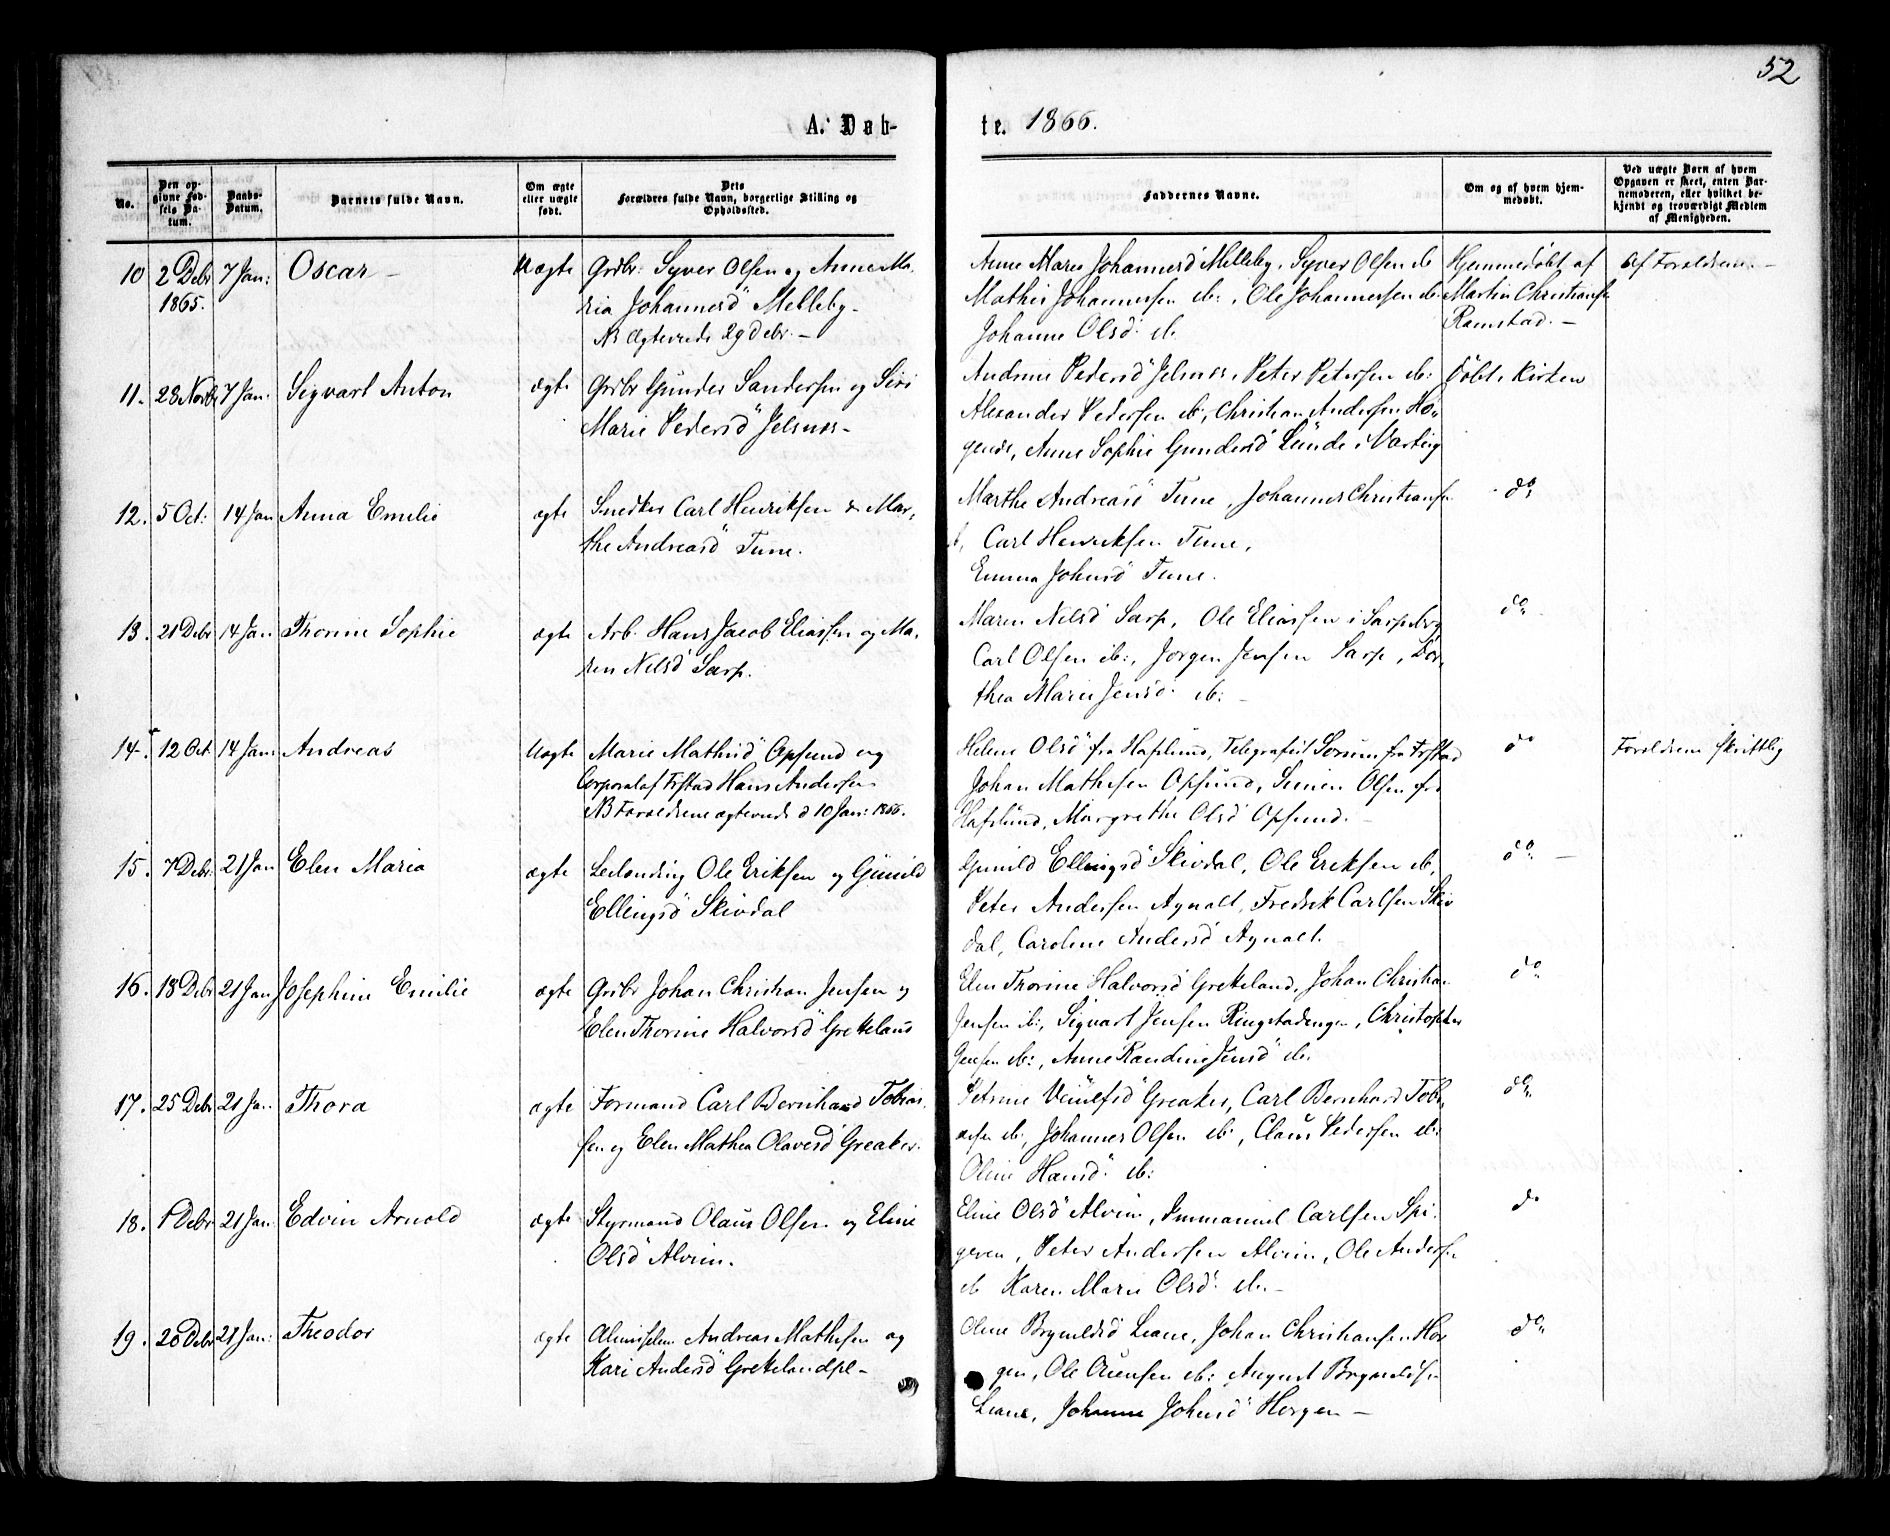 52
A. Døb-
te. 1866.
No.
Den op-
givne Fød-
sels Da-
tum.
Daabs-
Datum.
Barnets fulde Navn.
Om ægte
eller uægte
født.
Dets
Forældres fulde Navn, borgerlige Stilling og
Opholdssted.
Faddernes Navne.
Om og af hvem hjem-
medøbt.
Ved uægte Børn af hvem
Opgaven er skeet, enten Bar-
nemoderen, eller hvilket be-
kjendt og troværdigt Medlem
af Menigheden.
10 2 Debr 7 Jan: Oscar - Uægte Grdbr: Syver Olsen og Anne Ma-
1865. ria Johannesd Melleby -
NB Ægteviede 29 Debr. -
Anne Maria Johannesd Melleby, Syver Olsen ib
Mathis Johannessen ib:, Ole Johannessen ib.
Johanne Olsd. ib.
Hjemmedøbt af
Martin Christiansen
Ramstad. -
Af Forældrene. -
11. 28 Novbr 7 Jan: Sigvart Anton ægte Grdbr Gunder Sandersen og Siri
Marie Pedersd Jelsnes -
Andrine Pedersd Jelsnes, Peter Petersen ib:
Alexander Pedersen ib:, Christian Andersen Ho-
gende, Anne Sophie Gundersd Lunde i Varteig
Døbt i Kirken
12. 5 Oct: 14 Jan Anna Emilie ægte Snedker Carl Henriksen & Mar-
the Andreasd Tune.
Marthe Andreasd Tune, Johannes Christiansen
ib, Carl Henriksen Tune,
Emma Johnsd Tune.
do
13. 21 Debr 14 Jan Thorine Sophie ægte Arb. Hans Jacob Eliassen og Ma-
ren Nilsd Sarp.
Maren Nilsd Sarp, Ole Eliassen i Sarpsborg
Carl Olsen ib:, Jørgen Jensen Sarp, Dor-
thea Marie Jensd. ib: -
do
14. 12 Oct 14 Jan: Andreas Uægte Marie Mathisd Opsund og
Corporal af Frstad Hans Andersen
NB Forældrene ægteviede d 10 Jan: 1866.
Helene Olsd fra Hafslund, Telegrafist Sørum fra Frstad
Johan Mathisen Opsund, Simen Olsen fra
Hafslund, Margrethe Olsd Opsund. -
do
Forældrene skriftlig
15. 7 Debr: 21 Jan Elen Maria ægte Leilending Ole Eriksen og Gunild
Ellingsd Skivdal
Gunild Ellingsd Skivdal, Ole Eriksen ib,
Peter Andersen Agnalt, Fredrik Carlsen Skiv
dal, Caroline Andersd Agnalt.
do -
16. 18 Debr 21 Jan Josephine Emilie ægte Grdbr Johan Christian Jensen og
Elen Thorine Halvorsd Grekeland
Elen Thorine Halvorsd Grekeland, Johan Christian
Jensen ib:, Sigvart Jensen Ringstadengen, Christopher
Jensen ib:, Anne Randine Jensd ib.
do
17. 25 Debr 21 Jan. Thora ægte Formand Carl Bernhard Tobias-
sen og Elen Mathea Olavesd Greaker.
Petrine Greaker, Carl Bernhard Tobi-
asen ib, Johannes Olsen ib:, Claus Pedersen ib:
Oline Hansd. ib:
do
18. 1 Debr 21 Jan Edvin Arnold ægte Styrmand Olaus Olsen og Eline
Olsd Alvim.
Eline Olsd Alvim, Immanuel Carlsen Spi-
geren, Peter Andersen Alvim, Ole Andersen
ib Karen Marie Olsd. ib. -
do
19. 20 Debr 21 Jan: Theodor ægte Andreas Mathisen og
Kari Andersd Grekelandpl -
Oline Brynildsd Leane, Johan Christiansen Hor
gen, Ole ib: August Brynildsen
Leane, Johanne Johnsd Horgen -
do